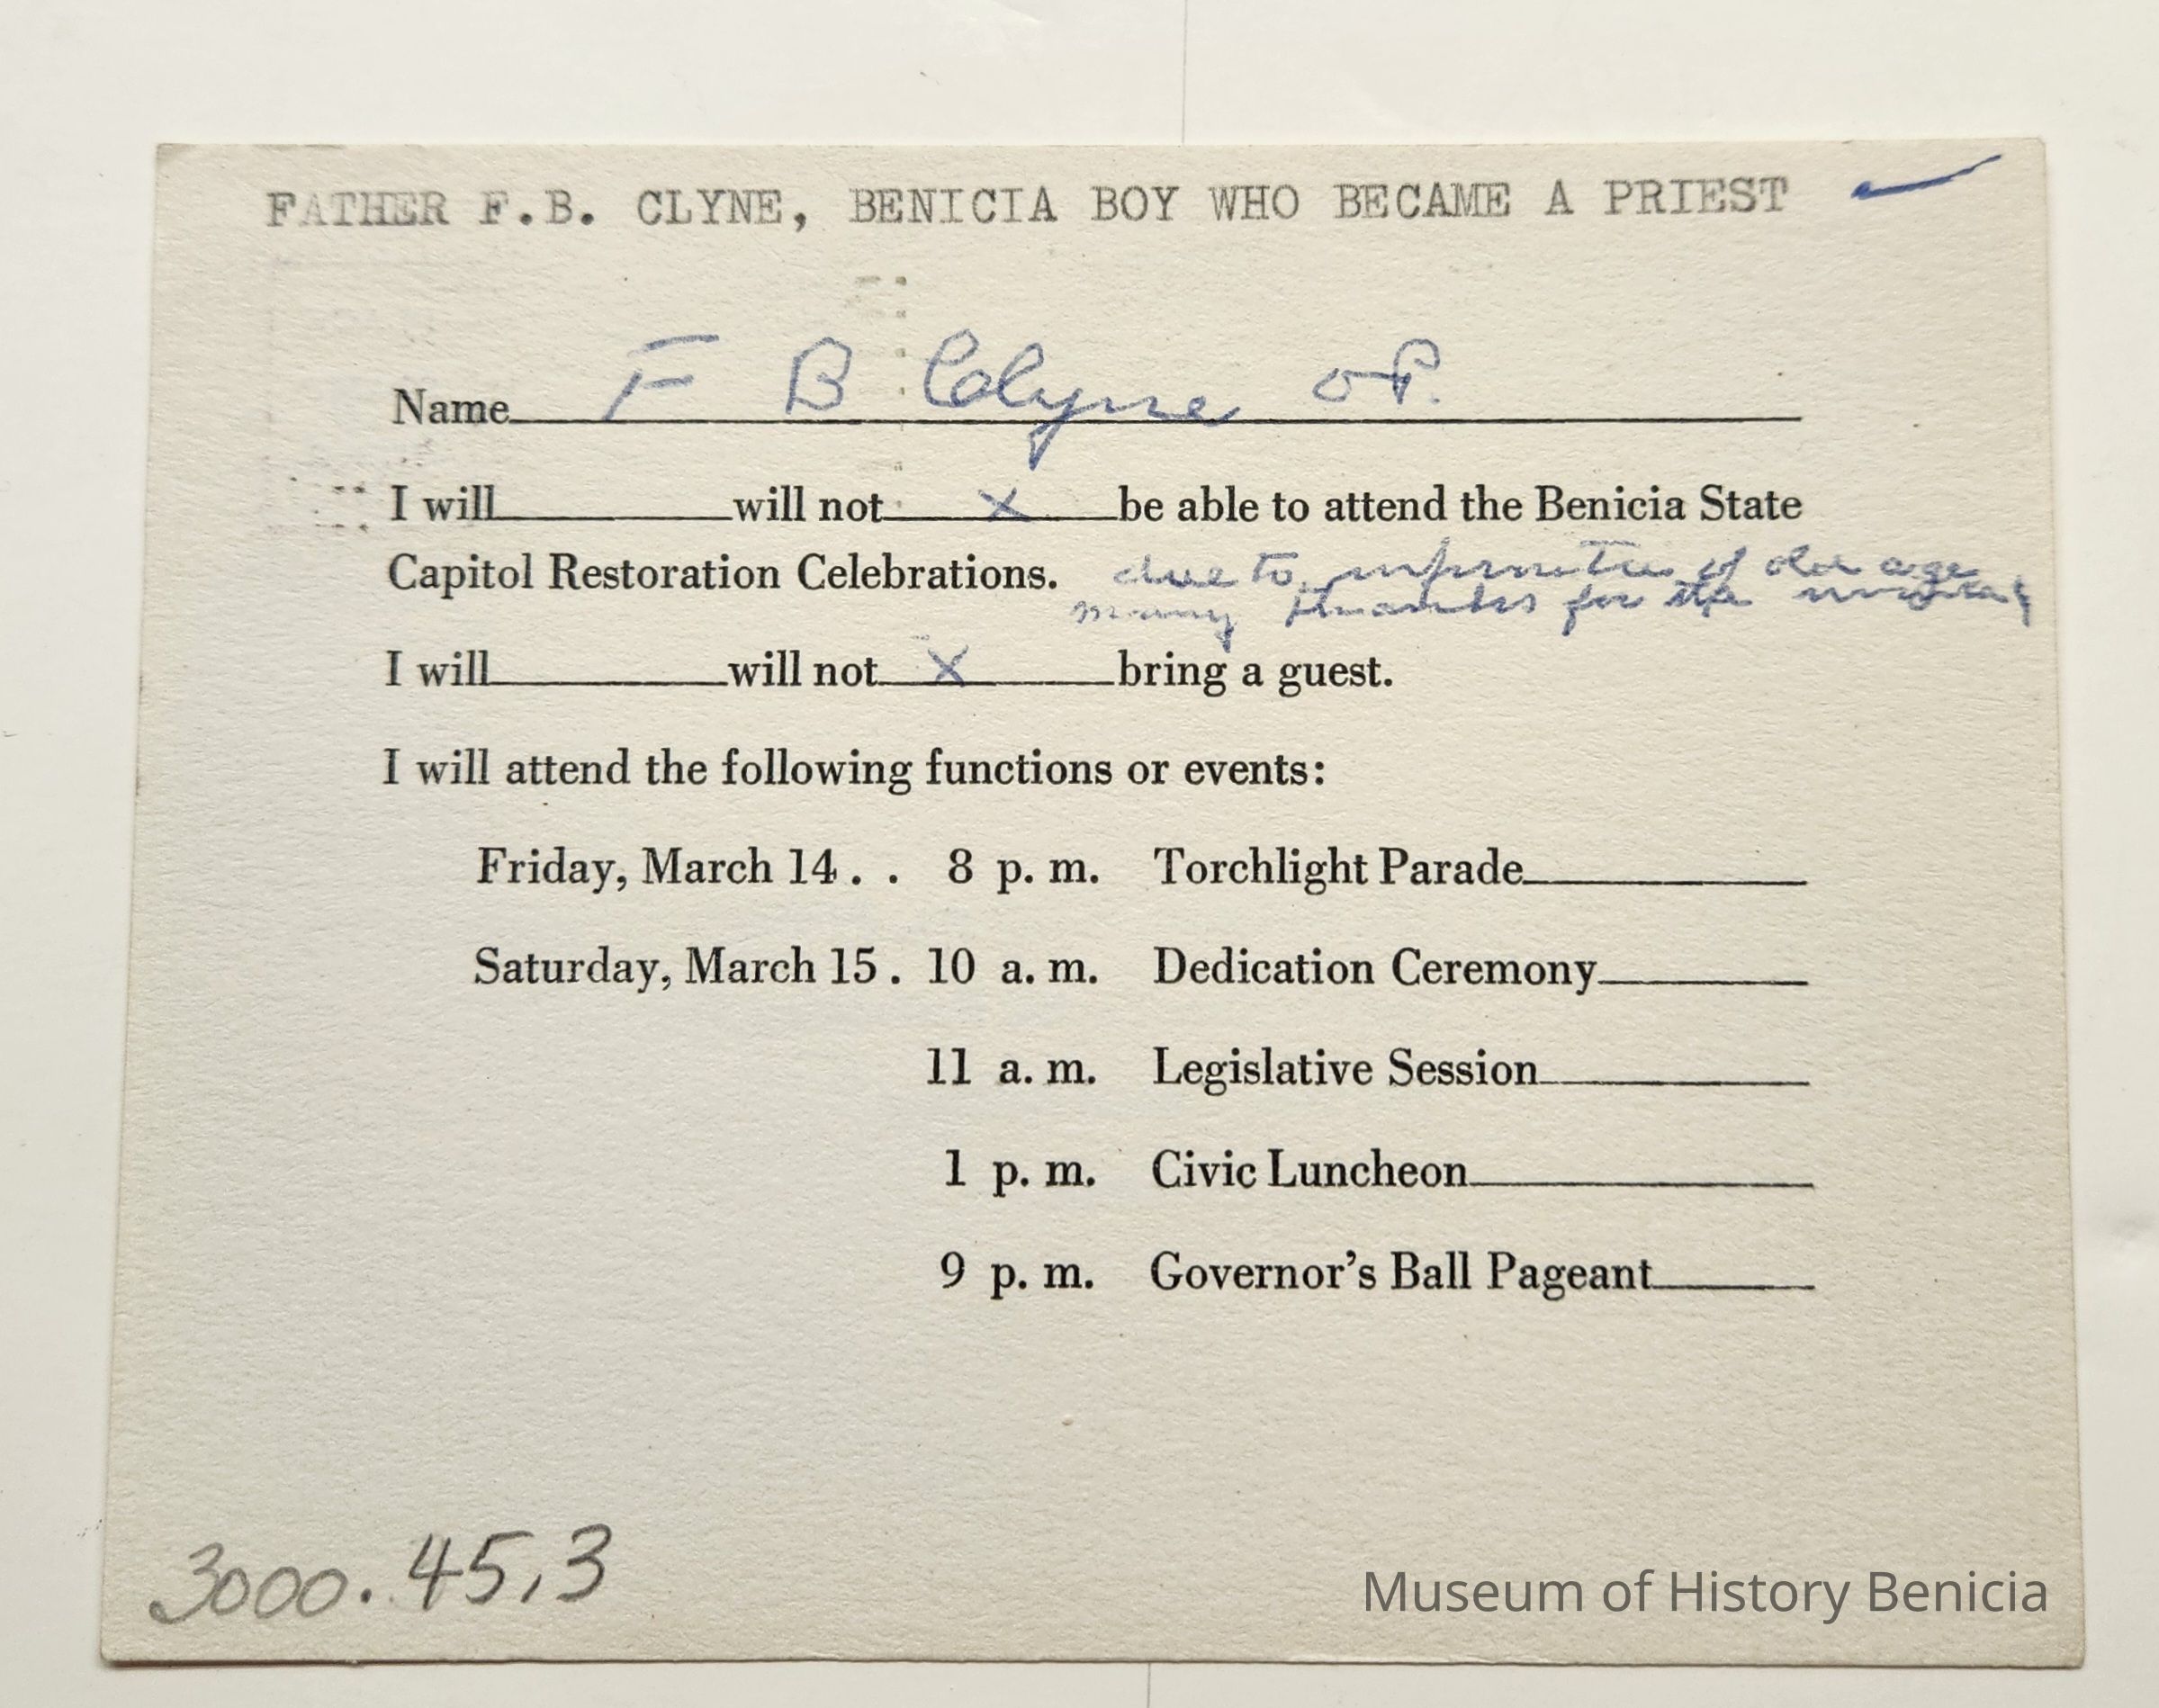 FATHER F.B. CLYNE, BENICIA BOY WHO BECAME A PRIEST
Name F B Clyne OP.
I will will not X be able to attend the Benicia State
Capitol Restoration Celebrations. due to infirmities of old age
many thanks for the
I will will not X bring a guest.
I will attend the following functions or events:
Friday, March 14 . . 8 p. m. Torchlight Parade
Saturday, March 15 . 10 a. m. Dedication Ceremony
11 a. m. Legislative Session
1 p. m. Civic Luncheon
9 p. m. Governor's Ball Pageant
3000.45,3
Museum of History Benicia